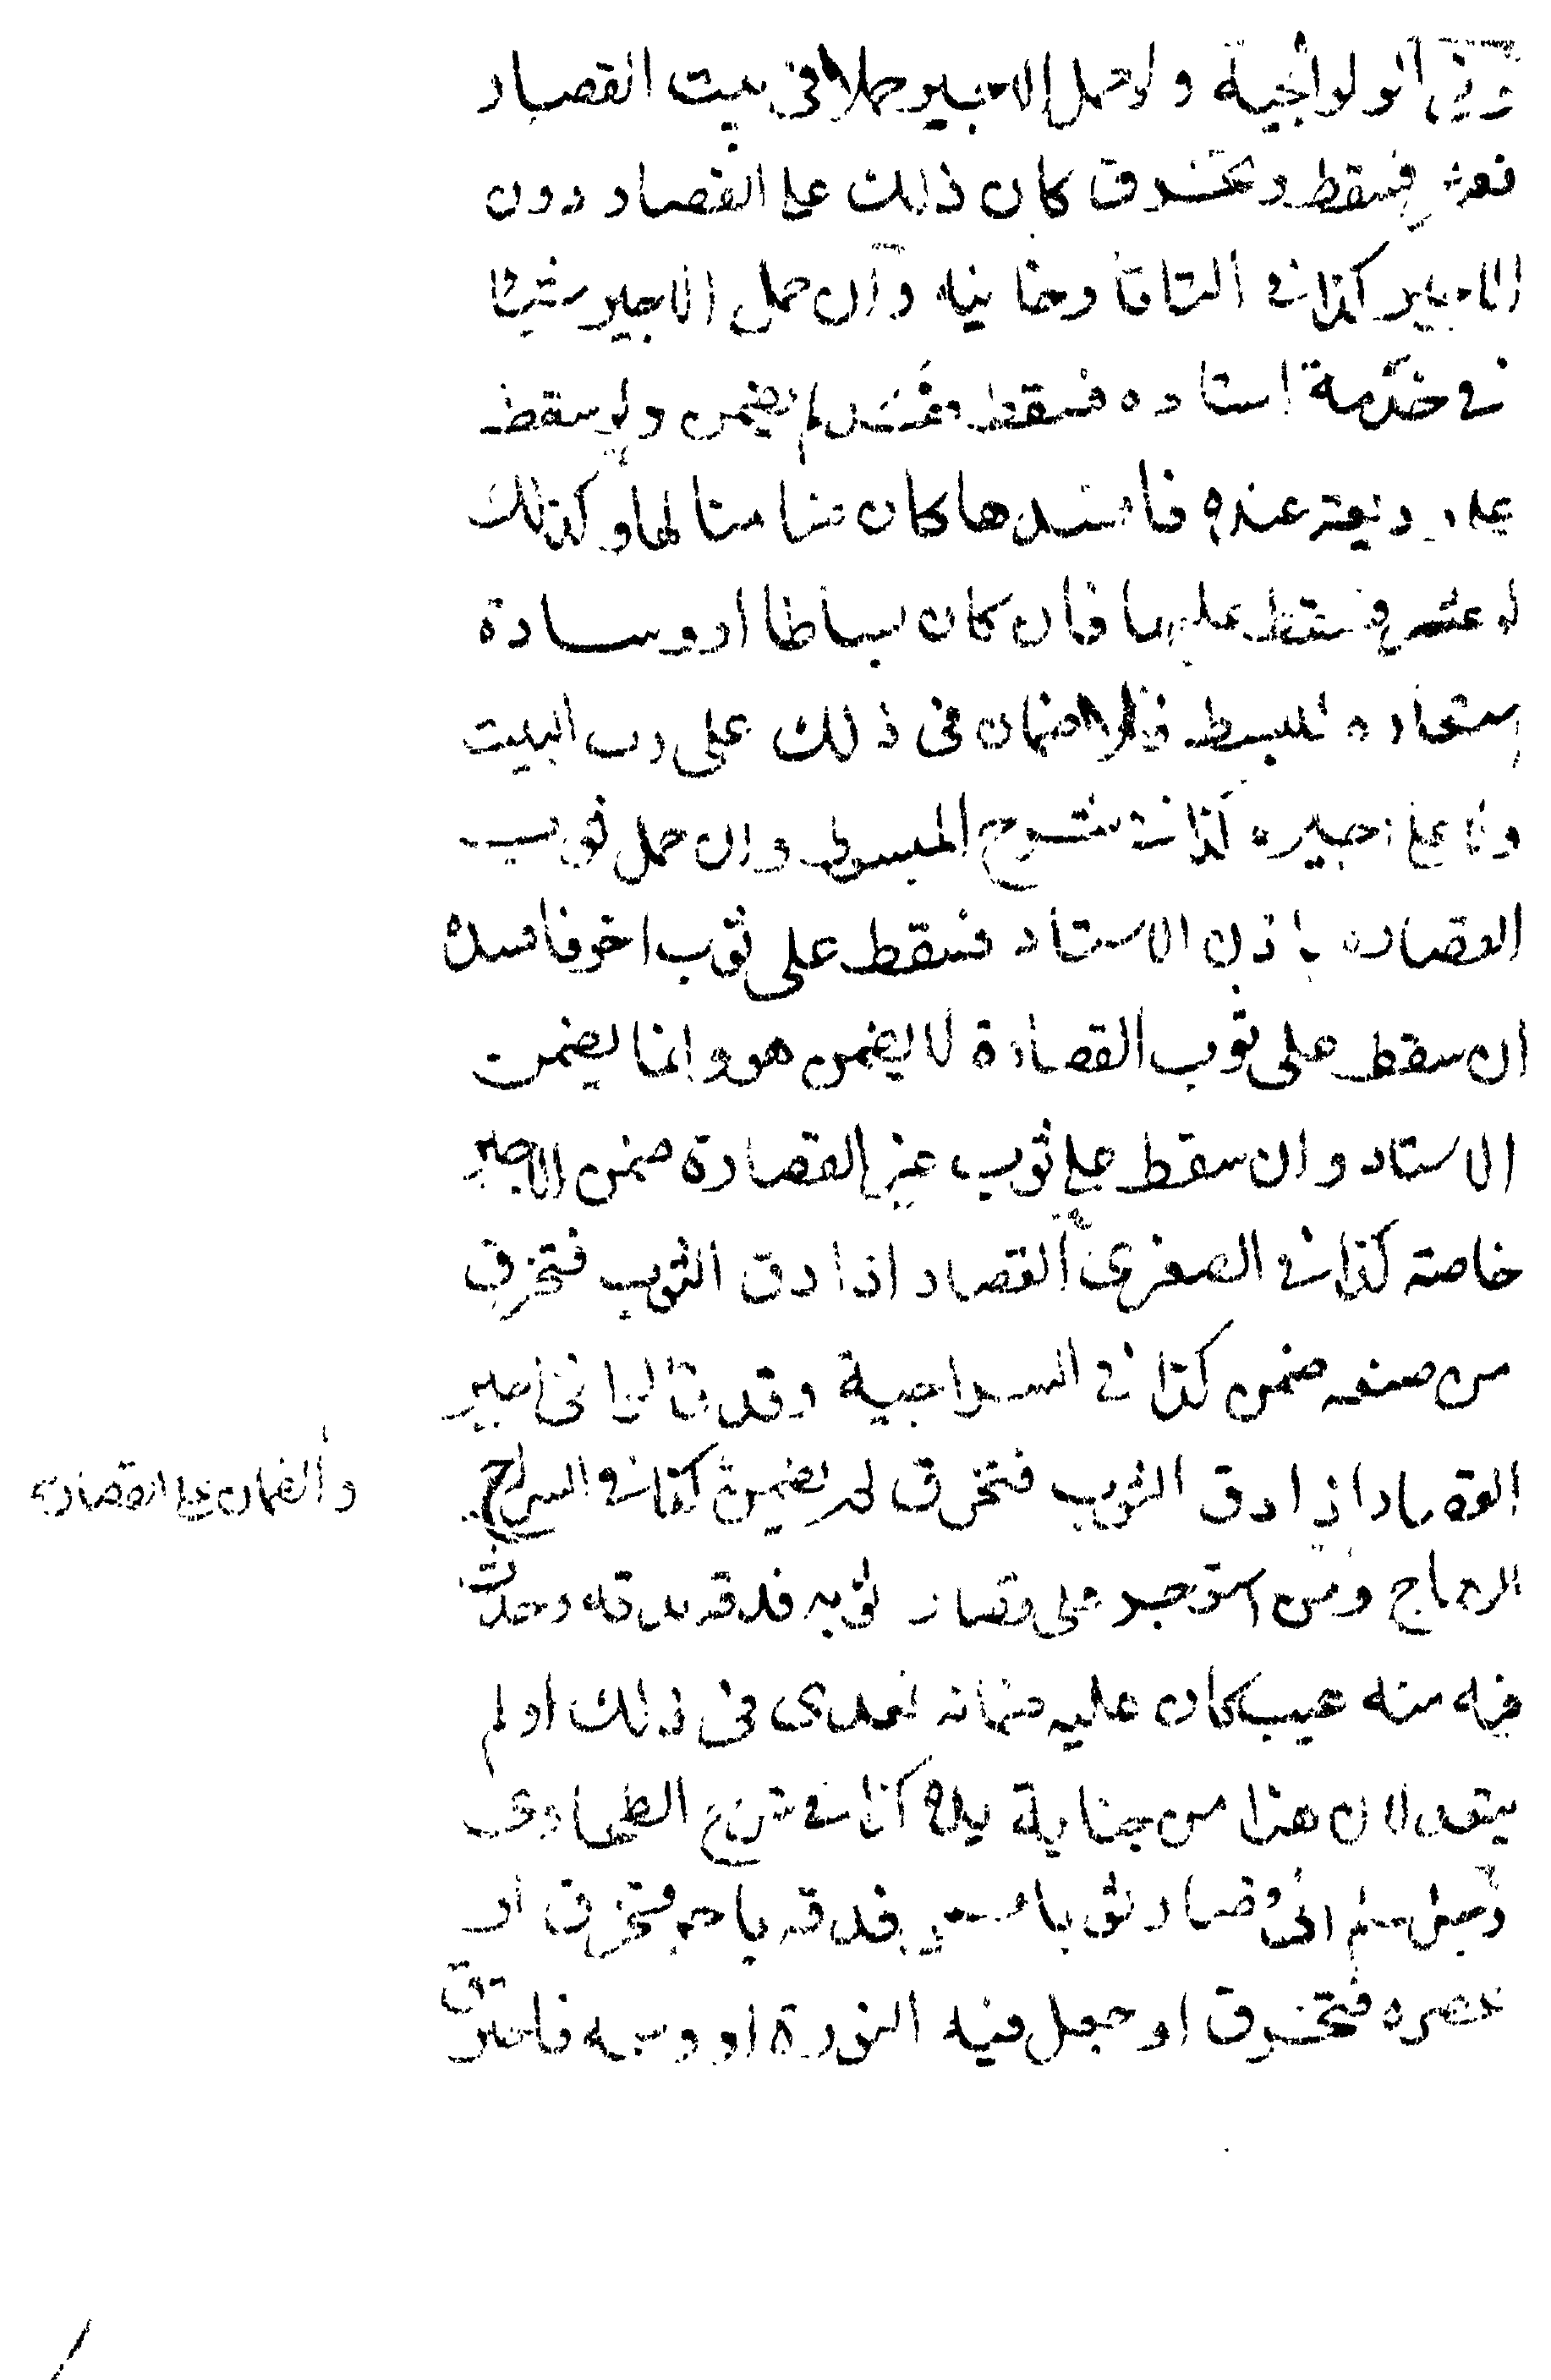 وفي الولوالجية ولو حمل الاجير حملا في بيت القصار
فعثر فسقط وتخرق كان ذلك على القصار دون
الاجير كذا في التاتارخانيه وان حمل الاجير شيئا
في خدمة استاده فسقط ففسد لم يضمن ولو سقط
على وديعة عنده فافسدها كان ضامنا لها وكذلك
لو عثر فسقط عليها فان كان بساطا او وسادة
استعاره للبسط فلا ضمان في ذلك على رب البيت
ولا على اجيره كذا في شرح المبسوط وان حمل ثوب
القصارة باذن الاستاد فسقط على ثوب اخر فافسده
ان سقط على ثوب القصارة لا يضمن هو وانما يضمن
الاستاد وان سقط على ثوب غير القصارة ضمن الاجير
خاصة كذا في الصغرى القصار اذا دق الثوب فتخرق
من صنعه ضمن كذا في السراجية وقد قالوا في اجير
القصار اذا دق الثوب فتخرق لم يضمن كذا في السراج
والضمان على القصار
الوهاج ومن استوجر على قصارة ثوب فدقه بدقه وحدث
فيه منه عيب كان عليه ضمانه تعدى في ذلك او لم
يتعد لان هذا من جناية يده كذا في شرح الطحاوى
رجل سلم الى قصار ثوبا فدقه باجره فتخرق او
عصره فتخرق او جعل فيه النورة او وسمه فاحترق